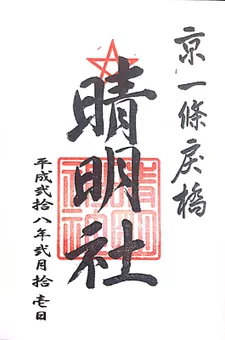 京一條戻橋
晴明社
平成弐拾八年弐月拾壱日